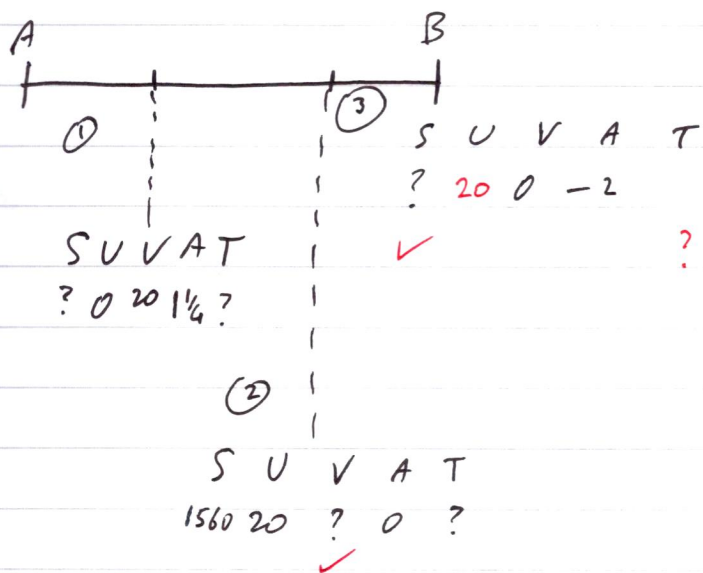 A B
① ③
S U V A T
? 20 0 -2
✓ ?
S U V A T
? 0 20 1¼ ?
②
S U V A T
1560 20 ? 0 ?
✓